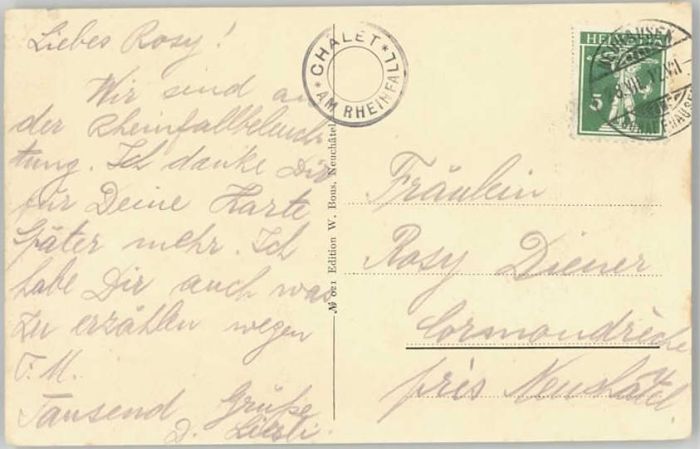 Liebes Rosy!
Wir sind an
der Rheinfallbeleuch
tung. Ich danke Dir
für Deine Karte
Später mehr. Ich
habe Dir auch was
zu erzählen wegen
T. M.
Tausend Grüße
D. Liesti.
CHALET * AM RHEINFALL *
№ 021 Edition W. Bous, Neuchâtel
HELVETIA
5
NEUHAUSEN
Fräulein
Rosy Diener
Cormondrèche
près Neuchâtel.